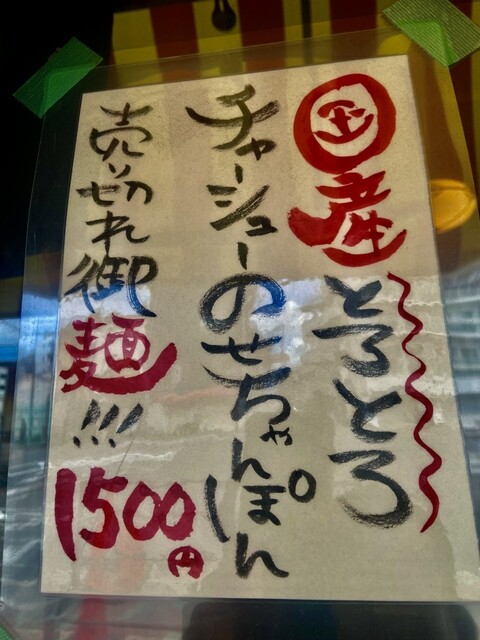 国産とろとろ
チャーシューのせちゃんぽん
売り切れ御麺!!!
1500円